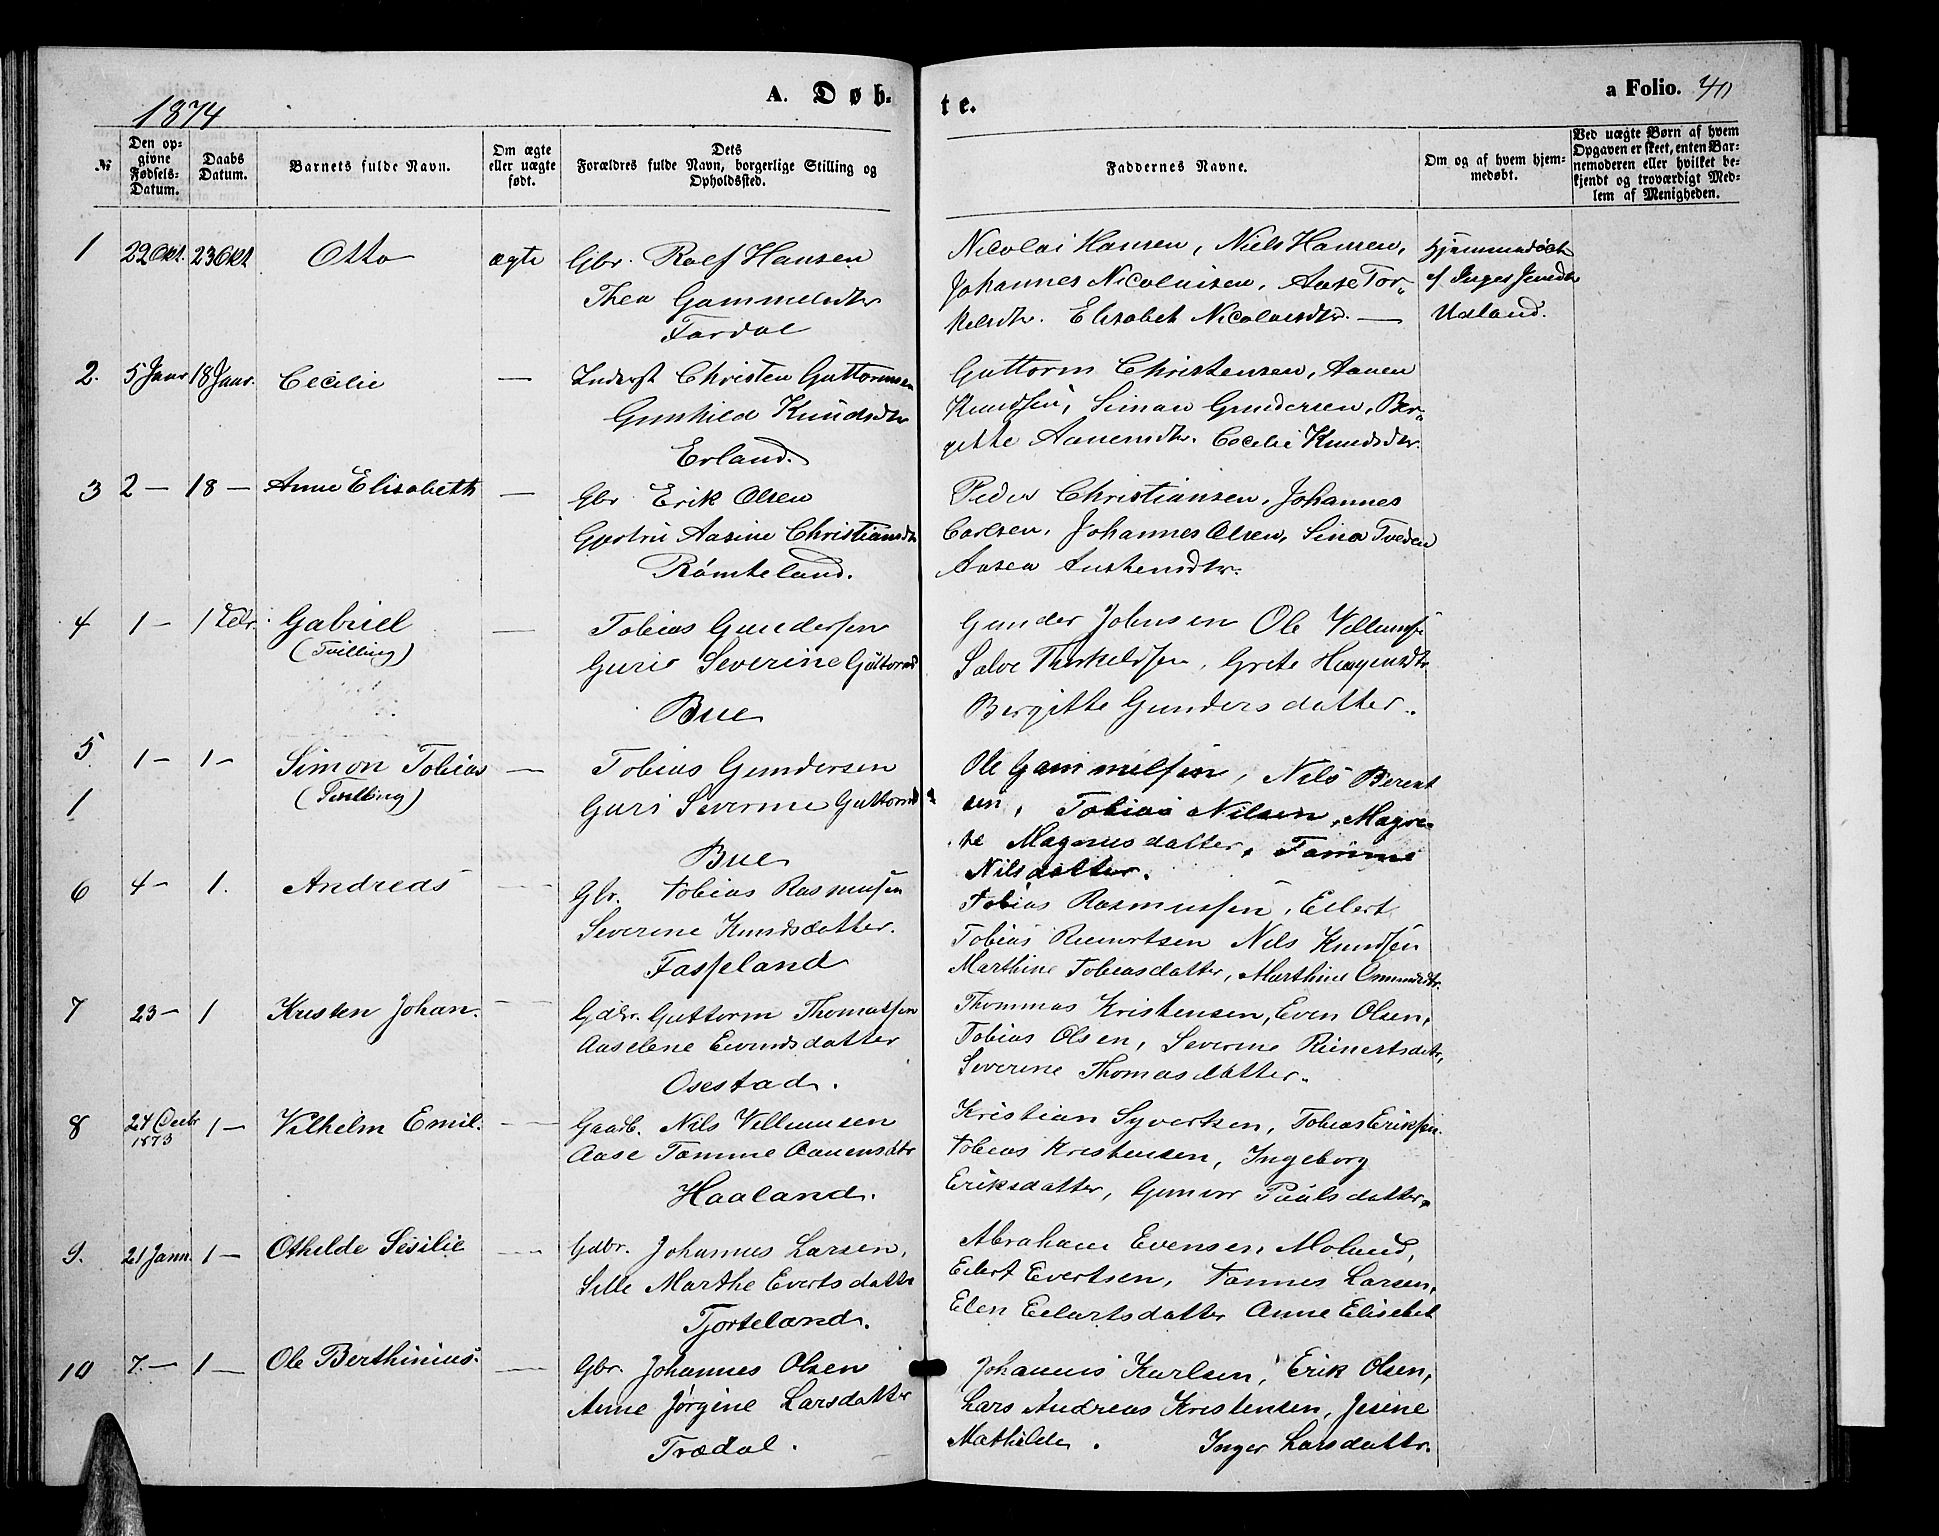 1874
A. Døb-
te.
a Folio. 40
№
Den op-
givne
Fødsels-
Datum.
Daabs
Datum.
Barnets fulde Navn.
Om ægte
eller uægte
født.
Dets
Forældres fulde Navn, borgerlige Stilling og
Opholdssted.
Faddernes Navne.
Om og af hvem hjem-
medøbt.
Ved uægte Børn af hvem
Opgaven er skeet, enten Bar-
nemoderen eller hvilket be-
kjendt og troværdigt Med-
lem af Menigheden.
1 22 Okt. 23 Okt Otto ægte Gbr. Rolf Hansen
Thea Gammelsdtr
Fardal
Nicolai Hansen, Niels Hansen,
Johannes Nicolaisen, Aase Tor-
kelsdtr. Elisabet Nicolaisdtr. —
Hjemmedøbt
af Inger Jensdtr
Udland.
2. 5 Janr 18 Janr. Cecilie — Inderst Christen Guttormsen
Gunhild Knudsdtr
Erland.
Guttorm Christensen, Aanen
Knudsen, Simon Gundersen, Ber-
gitte Aanensdtr. Cecilie Knudsdtr.
3 2 — 18 — Anne Elisabeth — Gbr Erik Olsen
Gjertrü Aasine Christiansdtr
Rømteland.
Peder Christiansen, Johannes
Carlsen, Johannes Olsen, Sina Tveden
Aasea Austensdtr.
4 1 — 1 Febr. Gabriel — Tobias Gundersen
(Tvilling)
Guri Severine Guttormsd
Bue
Gunder Johnsen Ole Villumsen
Salve Therkeldsen, Grete Haagensdtr
Bergitte Gundersdatter.
5. 1 — 1 — Simon Tobias — Tobias Gundersen
1
(Tvilling)
Guri Severine Guttormsd
Bue
Ole Gammelsen, Nils Berent
sen, Tobias Nilsen, Magre-
te Magnusdatter, Tomine
Nilsdatter.
6 4 — 1. Andreas — Gbr. Tobias Rasmussen
Severine Knudsdatter.
Fasseland
Tobias Rasmussen, Eilert
Tobias Reinertsen Nils Knudsen
Marthine Tobiasdatter, Marthine Ommundsdtr.
7 23 — 1 Kristen Johan. — Gdbr. Guttorm Thomassen
Aaselene Eivindsdatter
Osestad.
Thommas Kristensen, Even Olsen,
Tobias Olsen, Severine Reinertsdatr,
Severine Thomasdatter.
8 24 Decbr
1873 1 — Vilhelm Emil. — Gaadb. Nils Villumsen
Aase Tomine Aanensdtr
Haaland.
Kristian Syvertsen, Tobias Eriksen.
Tobias Kristensen, Ingeborg
Eriksdatter, Gunvor Paulsdatter.
9. 21 Jann. 1 — Othilde Sesilie — Gdbr. Johannes Larsen,
Sille Marthe Evertsdatter
Tjorteland.
Abraham Evensen Moland,
Eilert Evertsen, Tønnes Larsen,
Elen Eilertsdatter Anne Elisebet
10 7. — 1 — Ole Berthinius. — Gbr. Johannes Olsen
Anne Jørgine Larsdatter
Trædal.
Johannes Karlsen, Erik Olsen,
Lars Andreas Kristensen, Jesine
Mathilde. Inger Larsdattr.